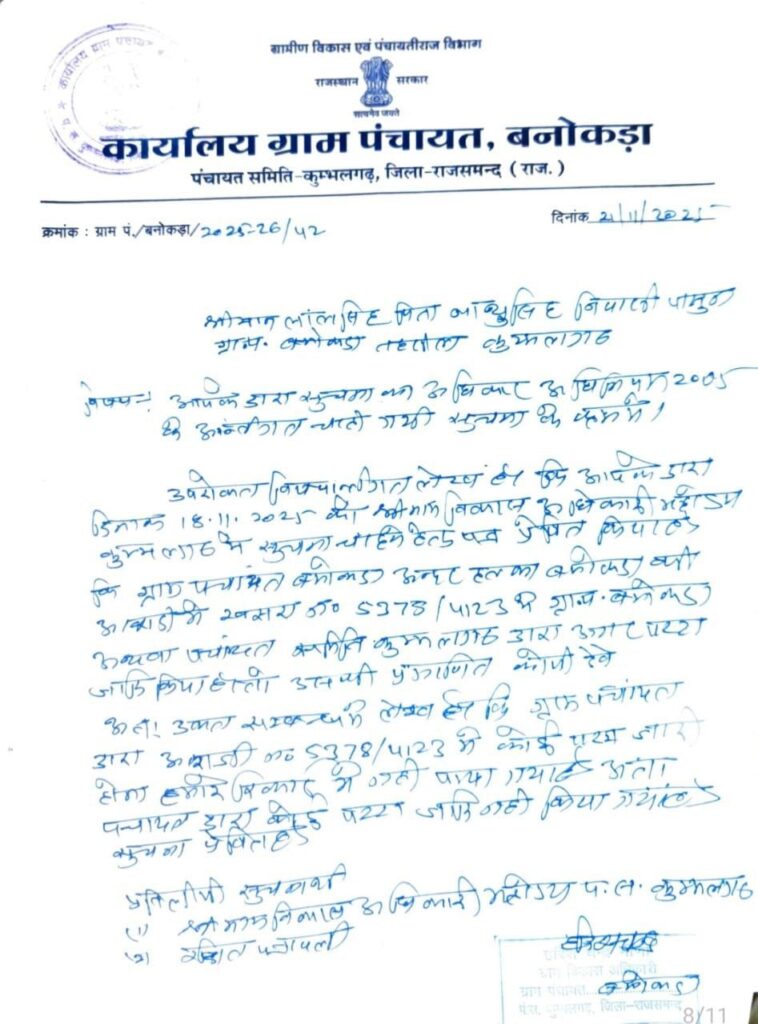 ग्रामीण विकास एवं पंचायतीराज विभाग
राजस्थान सरकार
सत्यमेव जयते
कार्यालय ग्राम पंचायत, बनोकड़ा
पंचायत समिति-कुम्भलगढ़, जिला-राजसमन्द (राज.)
क्रमांक : ग्राम पं./बनोकड़ा/2025-26/42
दिनांक 21/11/2025
श्रीमान लालसिंह पिता निवासी
ग्राम. बनोकडा तहसील कुम्भलगढ
विषय:- आपके द्वारा सुचना का अधिकार अधिनियम 2005
के अन्तर्गत चाही गयी सुचना के क्रम में।
उपरोक्त विषयान्तर्गत लेख है कि आपके द्वारा
दिनांक 18.11.2025 को श्रीमान विकास अधिकारी महोदय
कुम्भलगढ से सुचना चाहने हेतु पत्र प्रेषित किया है
कि ग्राम पंचायत बनोकडा अन्दर हल्का बनोकडा
आबादी में खसरा नं० 5378/4123 में ग्राम. बनोकडा
अथवा पंचायत समिति कुम्भलगढ द्वारा अगर पट्टा
जारी किया हो तो उसकी प्रमाणित कोपी देवे
अतः उक्त सम्बन्ध में लेख है कि ग्राम पंचायत
द्वारा आबादी नं० 5378/4123 में कोई पट्टा जारी
होना हमारे रिकार्ड में नही पाया गया है अतः
पंचायत द्वारा कोई पट्टा जारी नही किया गया है
सुचना प्रेषित है
प्रतिलीपी सुचनार्थ
(1) श्रीमान विकास अधिकारी महोदय प.स. कुम्भलगढ
(2) रक्षित पत्रावली
ग्राम विकास अधिकारी
ग्राम पंचायत. बनोकडा
पं.स. कुम्भलगढ़, जिला-राजसमन्द
8/11